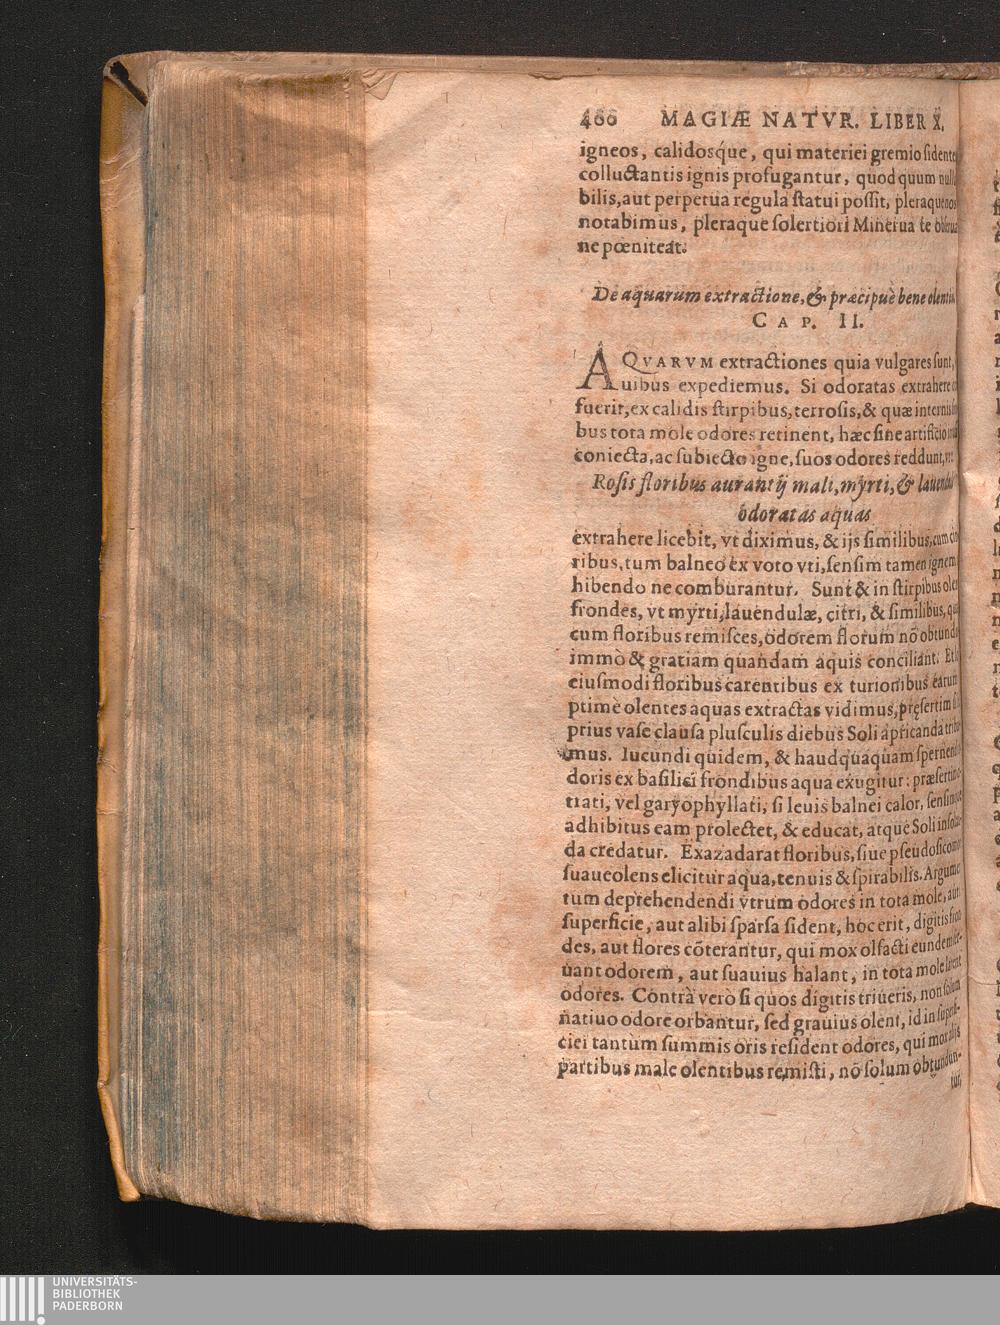 400 MAGIÆ NATVR. LIBER X.
igneos, calidosq́ue, qui materiei gremio ſidente
colluctantis ignis profugantur, quod quum
bilis, aut perpetua regula ſtatui poſſit, pleraque nos
notabimus, pleraque ſolertiori Minerua te
ne pœniteat.
De aquarum extractione, & præcipuè bene
CAP. II.
AQVARVM extractiones quia vulgares ſunt,
uibus expediemus. Si odoratas extrahere
fuerit, ex calidis ſtirpibus, terroſis, & quæ internis
bus tota mole odores retinent, hæc ſine artificio
coniecta, ac ſubiecto igne, ſuos odores reddunt, vt
Roſis floribus aurantij mali, myrti, & 
odoratas aquas
extrahere licebit, vt diximus, & ijs ſimilibus, cum
ribus, tum balneo ex voto vti, ſenſim tamen ignem
hibendo ne comburantur. Sunt & in ſtirpibus
frondes, vt myrti, lauendulæ, citri, & ſimilibus,
cum floribus remiſces, odorem florum nō
immò & gratiam quandam aquis conciliant.
eiuſmodi floribus carentibus ex turionibus
ptime olentes aquas extractas vidimus, pręſertim
prius vaſe clauſa pluſculis diebus Soli apricanda
mus. Iucundi quidem, & haudquaquam
doris ex baſilici frondibus aqua exugitur: præſertim
trati, vel garyophyllati, ſi leuis balnei calor,
adhibitus eam prolectet, & educat, atque Soli
da credatur. Ex azadarat floribus, ſiue
ſuaueolens elicitur aqua, tenuis & ſpirabilis.
tum deprehendendi vtrum odores in tota mole, aut
ſuperficie, aut alibi ſparſa ſident, hoc erit, digitis
des, aut flores cōterantur, qui mox olfacti
uant odorem, aut ſuauius halant, in tota mole
odores. Contrà verò ſi quos digitis triueris, non
natiuo odore orbantur, ſed grauius olent, id in
ciei tantùm ſummis oris reſident odores, qui
partibus male olentibus remiſti, nō ſolum
tur,
UNIVERSITÄTS-
BIBLIOTHEK
PADERBORN